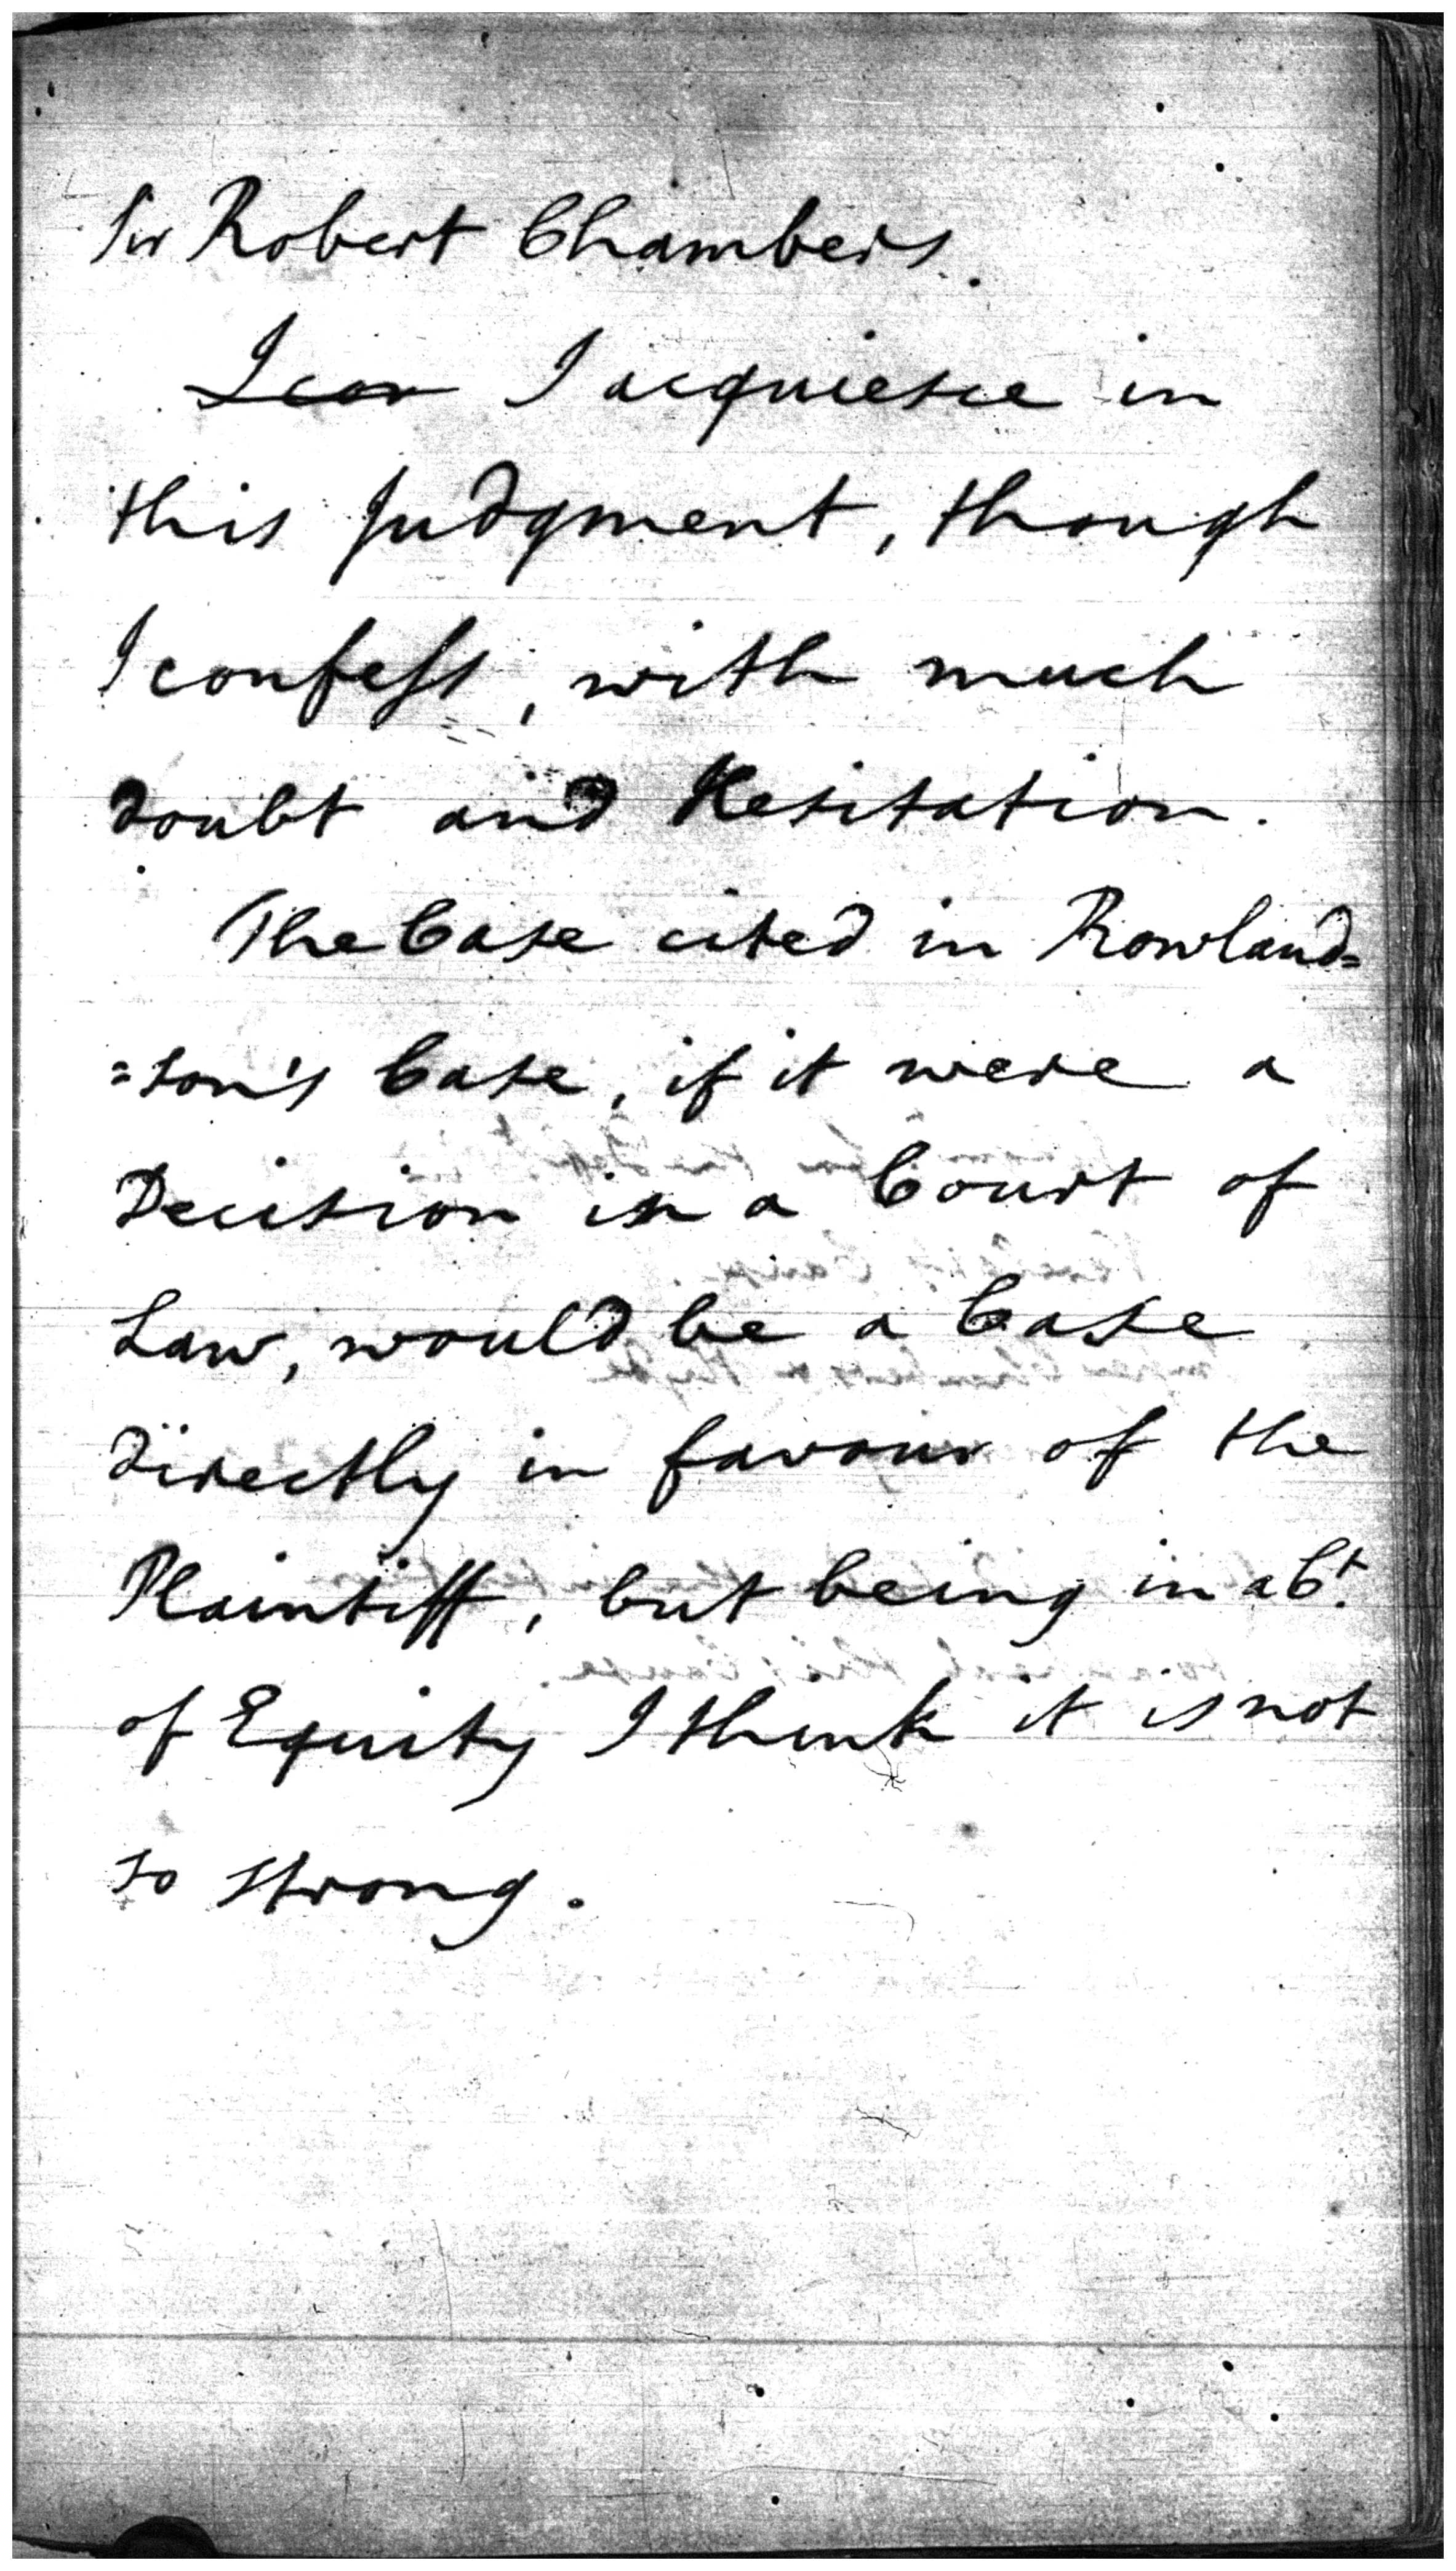 Sir Robert Chambers.
I con I acquiesce in
this Judgment, though
I confess, with much
doubt and Hesitation.
The Case cited in Rowland=
=son's Case, if it were a
Decision in a Court of
Law, would be a Case
directly in favour of the
Plaintiff, but being in a Ct.
of Equity I think it is not
so strong.